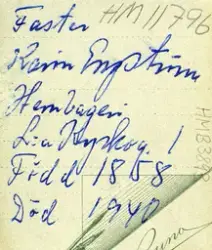 Faster
HM 11796
Karin Engström
Hembageri
Lia Kyrkog. 1
Född 1858
Död 1940